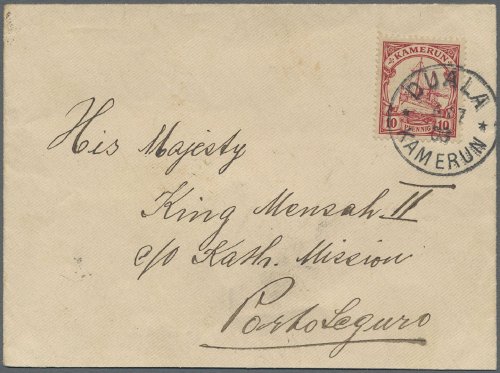 KAMERUN
10 PFENNIG 10
DUALA
KAMERUN
His Majesty
King Mensah II
c/o Kath. Mission
Porto Seguro